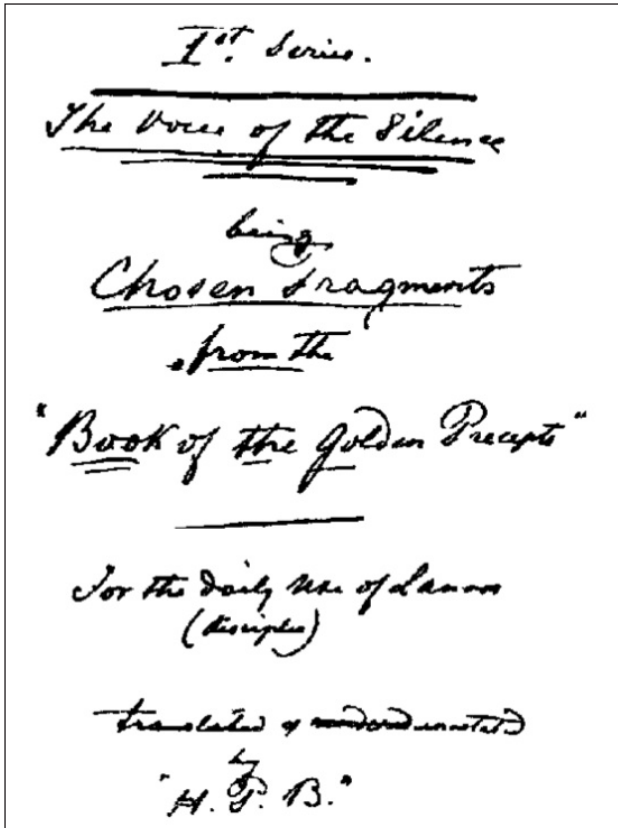 Ist. Series.
The Voice of the Silence
being
Chosen Fragments
from the
"Book of the Golden Precepts"
For the daily use of Lanoos
(disciples)
translated & annotated
by
"H. P. B."